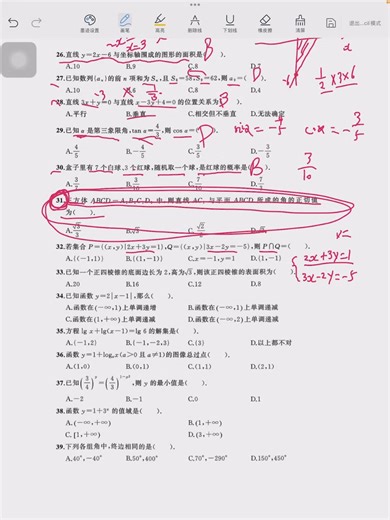 26.直线 y=2x-6 与坐标轴围成的图形的面积是( ). B
A.10 B.9 C.8 D.7
27.已知数列{aₙ}的前 n 项和为 Sₙ,且 S₄=58,S₅=62,则 a₅=( ).
A.10 B.6 C.8 D.4
28.直线 3x+y=0 与直线 x-3y+4=0 的位置关系为( ). B
A.平行 B.垂直 C.相交但不垂直 D.无法确定
29.已知 α 是第三象限角,tan α=4/3,则 cos α=( ). D
A.4/5 B.-4/5 C.3/5 D.-3/5
30.盒子里有 7 个白球,3 个红球,随机取一个球,是红球的概率是( ). B
31.正方体 ABCD-A₁B₁C₁D₁ 中,则直线 AC₁ 与平面 ABCD 所成的角的正切值
为( ).
32.若集合 P={(x,y)|2x+3y=1},Q={(x,y)|3x-2y=-5},则 P∩Q=( ).
A.{(-1,1)} B.(-1,1) C.x=-1,y=1 D.{(1,-1)}
33.已知一个正四棱锥的底面边长为 2,高为√3,则该正四棱锥的表面积为( ).
A.20 B.16 C.12 D.8
34.已知函数 y=2|x-1|,那么( ).
A.函数在(-∞,1)上单调递增 B.函数在(-∞,1)上单调递减
C.函数在(1,+∞)上单调递减 D.函数在(-1,+∞)上单调递减
35.方程 lg x+lg(x-1)=lg 6 的解集是( ).
A.{-1,2} B.{-1,-2,3} C.{3} D.以上都不对
36.函数 y=1+logₐx(a>0 且 a≠1)的图像总过点( ).
A.(1,0) B.(0,1) C.(1,1) D.(2,1)
A.-2 B.-1 C.0 D.1
38.函数 y=1+3ˣ 的值域是( ).
A.(-∞,+∞) B.(1,+∞)
C.[1,+∞) D.(3,+∞)
39.下列各组角中,终边相同的是( ).
A.40°,-40° B.50°,400° C.70°,-290° D.150°,450°
x=3
1/2×3×6
cosα=-3/5
3/10
2x+3y=1
3x-2y=-5